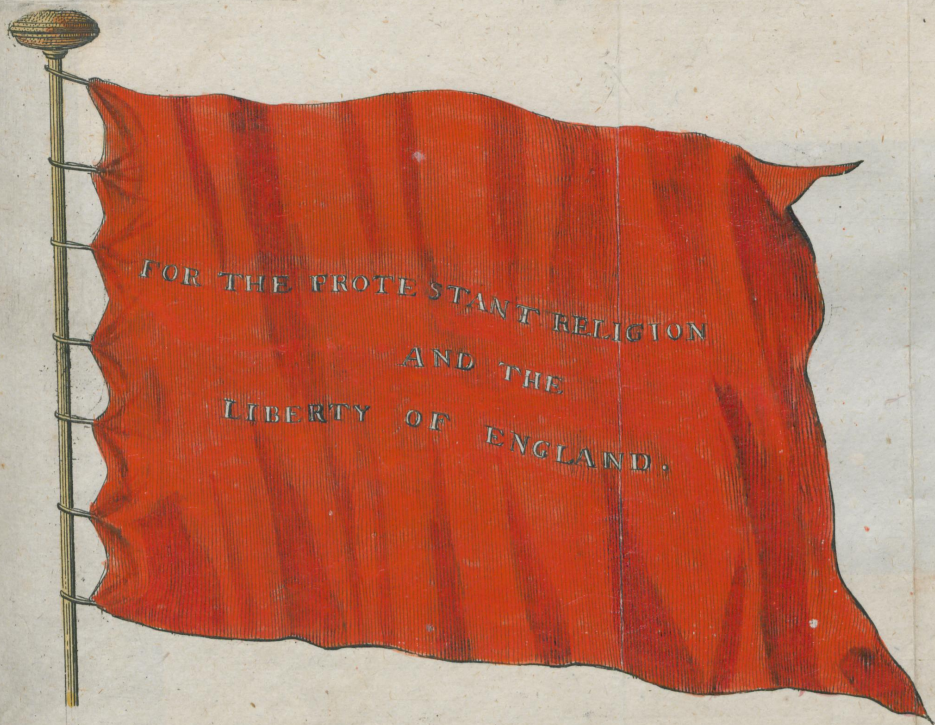 FOR THE PROTESTANT RELIGION
AND THE
LIBERTY OF ENGLAND.